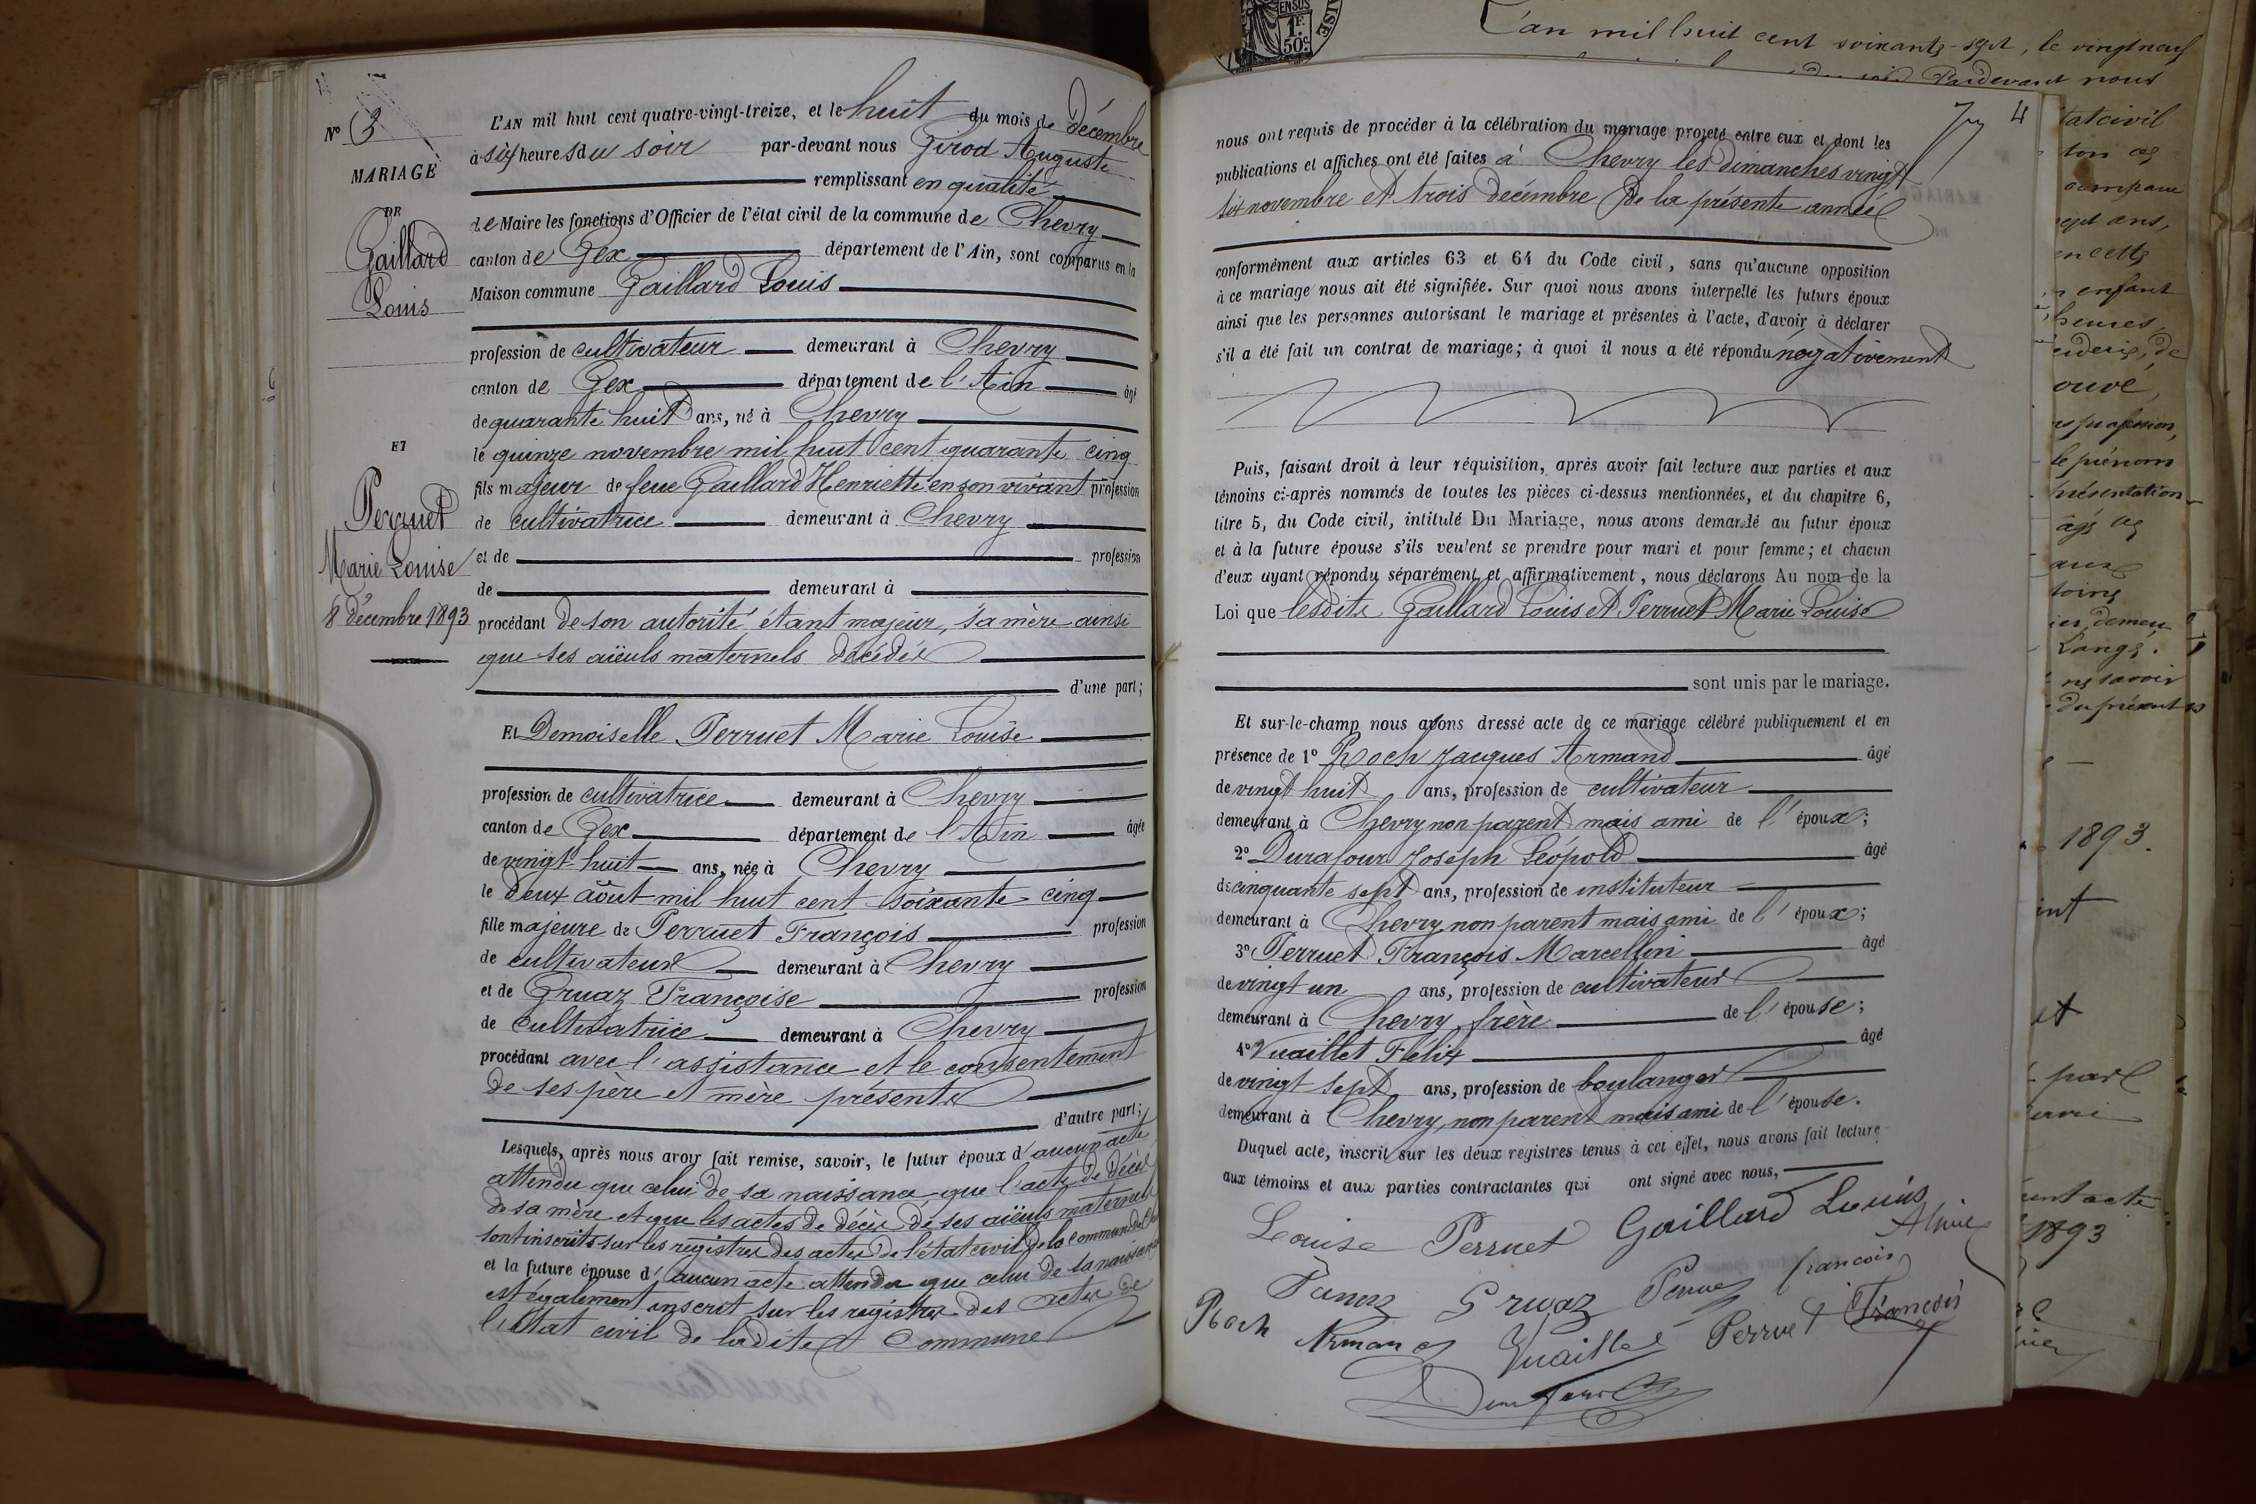 N° 3
MARIAGE
DE
Gaillard
Louis
ET
Perruet
Marie Louise
8 Décembre 1893
L'AN mil huit cent quatre-vingt-treize, et le huit du mois de décembre
à six heures du soir par-devant nous Girod Auguste
remplissant en qualité
de Maire les fonctions d'Officier de l'état civil de la commune de Chevry
canton de Gex département de l'Ain, sont comparus en la
Maison commune Gaillard Louis
profession de cultivateur demeurant à Chevry
canton de Gex département de l'Ain âgé
de quarante huit ans, né à Chevry
le quinze novembre mil huit cent quarante cinq
fils majeur de feue Gaillard Henriette en son vivant profession
de cultivatrice demeurant à Chevry
et de profession
de demeurant à
procédant de son autorité étant majeur, sa mère ainsi
que ses aïeuls maternels décédés
d'une part;
Et Demoiselle Perruet Marie Louise
profession de cultivatrice demeurant à Chevry
canton de Gex département de l'Ain âgée
de vingt huit ans, née à Chevry
le deux août mil huit cent soixante cinq
fille majeure de Perruet François profession
de cultivateur demeurant à Chevry
et de Gruaz Françoise profession
de cultivatrice demeurant à Chevry
procédant avec l'assistance et le consentement
de ses père et mère présents
d'autre part;
Lesquels, après nous avoir fait remise, savoir, le futur époux d'aucun acte
attendu que celui de sa naissance, que l'acte de décès
de sa mère et que les actes de décès de ses aïeuls maternels
sont inscrits sur les registres des actes de l'état civil de la commune de
et la future épouse d'aucun acte attendu que celui de sa naissance
est également inscrit sur les registres des actes de
l'état civil de ladite commune
4
nous ont requis de procéder à la célébration du mariage projeté entre eux et dont les
publications et affiches ont été faites à Chevry les dimanches vingt
six novembre et trois décembre de la présente année
conformément aux articles 63 et 64 du Code civil, sans qu'aucune opposition
à ce mariage nous ait été signifiée. Sur quoi nous avons interpellé les futurs époux
ainsi que les personnes autorisant le mariage et présentes à l'acte, d'avoir à déclarer
s'il a été fait un contrat de mariage; à quoi il nous a été répondu négativement
Puis, faisant droit à leur réquisition, après avoir fait lecture aux parties et aux
témoins ci-après nommés de toutes les pièces ci-dessus mentionnées, et du chapitre 6,
titre 5, du Code civil, intitulé Du Mariage, nous avons demandé au futur époux
et à la future épouse s'ils veulent se prendre pour mari et pour femme; et chacun
d'eux ayant répondu séparément et affirmativement, nous déclarons Au nom de la
Loi que lesdits Gaillard Louis et Perruet Marie Louise
sont unis par le mariage.
Et sur-le-champ nous avons dressé acte de ce mariage célébré publiquement et en
présence de 1° Roch Jacques Armand âgé
de vingt huit ans, profession de cultivateur
demeurant à Chevry non parent mais ami de l'époux;
2° Durafour Joseph Léopold âgé
de cinquante sept ans, profession de instituteur
demeurant à Chevry non parent mais ami de l'époux;
3° Perruet François Marcellin âgé
de vingt un ans, profession de cultivateur
demeurant à Chevry, frère de l'épouse;
4° Vuaillet Félix âgé
de vingt sept ans, profession de boulanger
demeurant à Chevry, non parent mais ami de l'épouse.
Duquel acte, inscrit sur les deux registres tenus à cet effet, nous avons fait lecture
aux témoins et aux parties contractantes qui ont signé avec nous,
Louise Perruet Gaillard Louis
Gruaz Perruet françois
Roch Armand Vuaillet Perruet François
Durafour
1F
50c
L'an mil huit cent soixante-sept, le vingt neuf
Pardevant nous
tat civil
ans,
en cette
enfant
heures,
ouvé,
profession,
le prénom
présentation
âgés
demeu
savoir
du présent
1893.
par
acte
1893